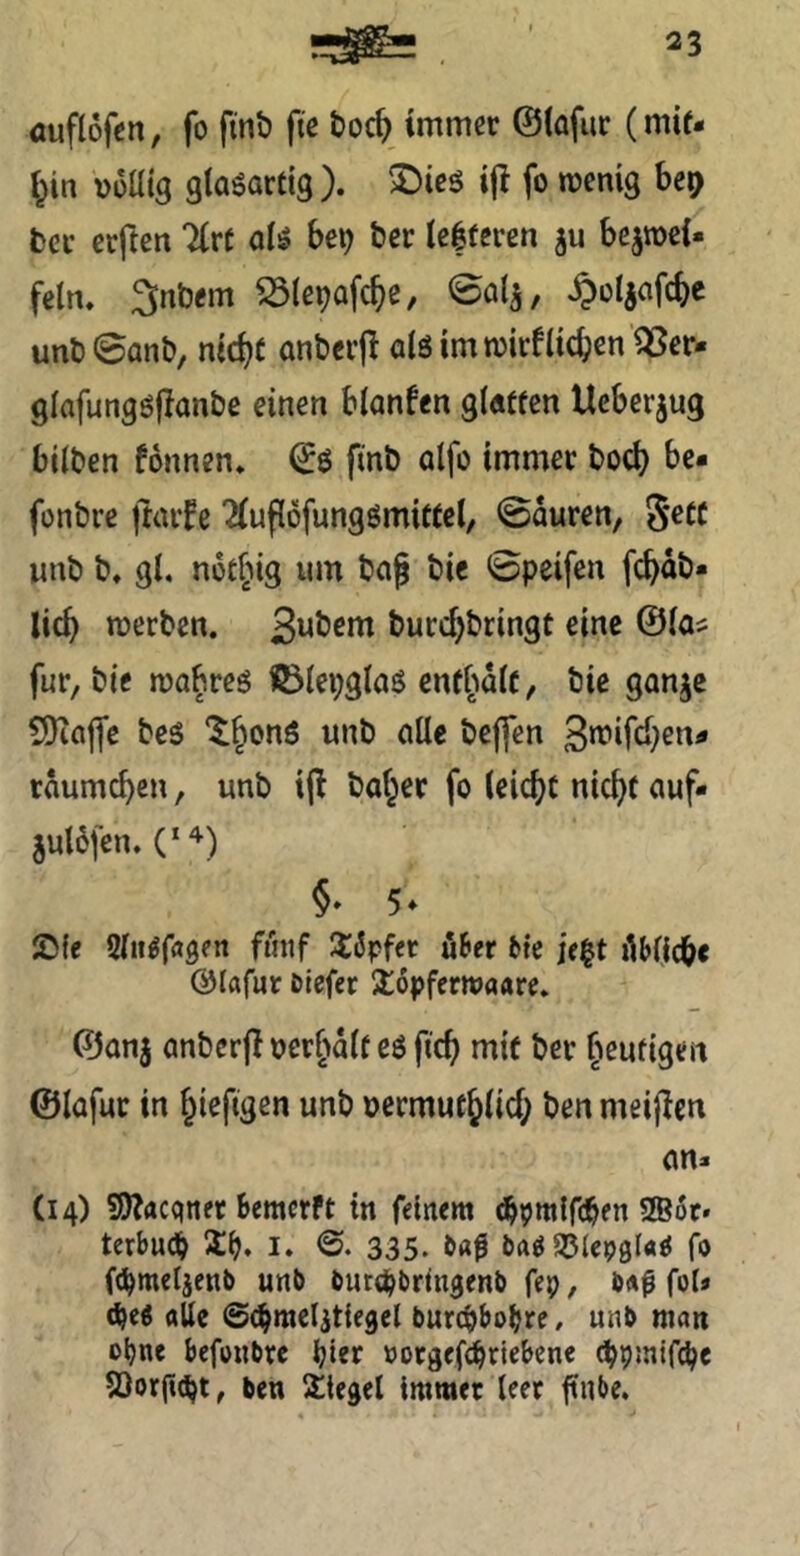 23
auflösen, so sind sie doch immer Glasur (mit-
hin völlig glasartig). Dies ist so wenig bey
der ersten Art als bey der letzteren zu bezwei-
feln. Indem Bleyasche, Salz, Holzasche
und Sand, nicht anderst als im wirklichen Ver-
glasungsstande einen blanken glatten Ueberzug
bilden können. Es sind also immer doch be-
sondre starke Auflösungsmittel, Säuren, Fett
und d. gl. nöthig um daß die Speisen schäd-
lich werden. Zudem durchdringt eine Gla-
sur, die wahres Bleyglas enthält, die ganze
Masse des Thons und alle dessen Zwischen-
räumchen, und ist daher so leicht nicht auf-
zulösen. (14)
§. 5.
Die Aussagen fünf Töpfer über die jetzt übliche
Glasur dieser Töpferwaare.
Ganz anderst verhält es sich mit der heutigen
Glasur in hiesigen und vermuthlich den meisten
an-
(14) Macqner bemerkt in seinem chymischen Wör-
terbuch Th. 1. S. 335. daß das Bleyglas so
schmelzend und durchdringend sey, daß sol-
ches alle Schmelztiegel durchbohre, und man
ohne besondre hier vorgeschriebene chymische
Vorsicht, den Tiegel immer leer finde.